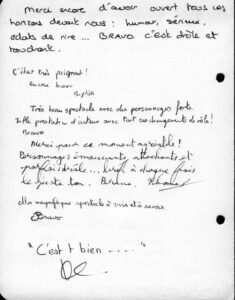 Merci encore d'avoir ouvert tous ces
horizons devant nous : humour, sérieux,
éclats de rire ... BRAVO. c'est drôle et
touchant.
C'était très poignant!
encore bravo
Très beau spectacle avec des personnages forts.
prestation d'acteur avec tout ces changements de rôle!
Bravo
Merci pour ce moment agréable!
Personnages émouvants, attachants et
parfois drôle..., à chaque fois
le juste ton. Bravo.
magnifique spectacle à voir et à revoir
Bravo
"C'est t bien ....."